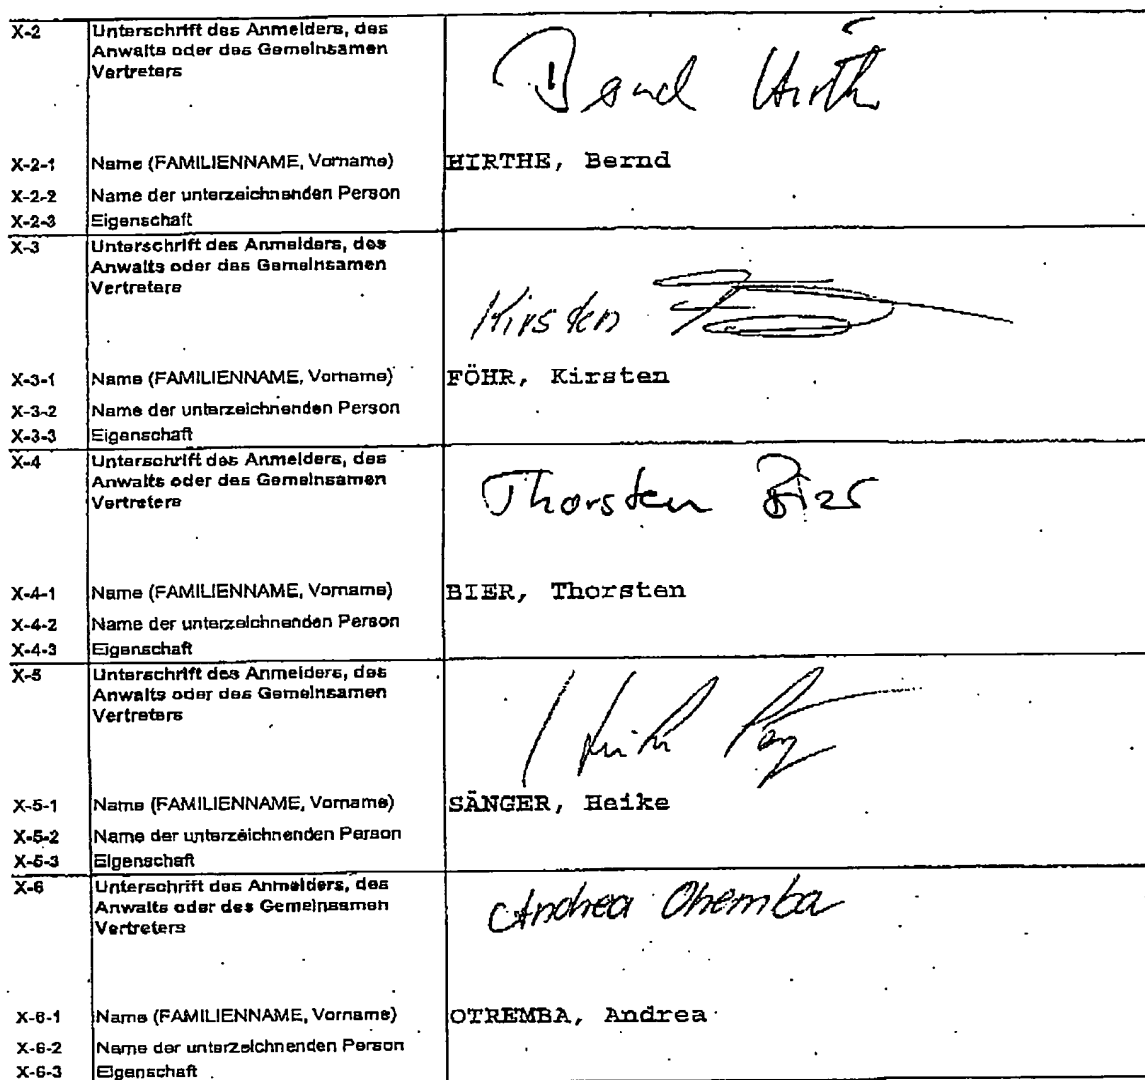 X-2 Unterschrift des Anmelders, des
Anwalts oder des Gemeinsamen
Vertreters
Bernd Hirth
X-2-1 Name (FAMILIENNAME, Vorname) HIRTHE, Bernd
X-2-2 Name der unterzeichnenden Person
X-2-3 Eigenschaft
X-3 Unterschrift des Anmelders, des
Anwalts oder des Gemeinsamen
Vertreters
Kirsten
X-3-1 Name (FAMILIENNAME, Vorname) FÖHR, Kirsten
X-3-2 Name der unterzeichnenden Person
X-3-3 Eigenschaft
X-4 Unterschrift des Anmelders, des
Anwalts oder des Gemeinsamen
Vertreters
Thorsten Bier
X-4-1 Name (FAMILIENNAME, Vorname) BIER, Thorsten
X-4-2 Name der unterzeichnenden Person
X-4-3 Eigenschaft
X-5 Unterschrift des Anmelders, des
Anwalts oder des Gemeinsamen
Vertreters
X-5-1 Name (FAMILIENNAME, Vorname) SÄNGER, Heike
X-5-2 Name der unterzeichnenden Person
X-5-3 Eigenschaft
X-6 Unterschrift des Anmelders, des
Anwalts oder des Gemeinsamen
Vertreters
Andrea Otremba
X-6-1 Name (FAMILIENNAME, Vorname) OTREMBA, Andrea
X-6-2 Name der unterzeichnenden Person
X-6-3 Eigenschaft